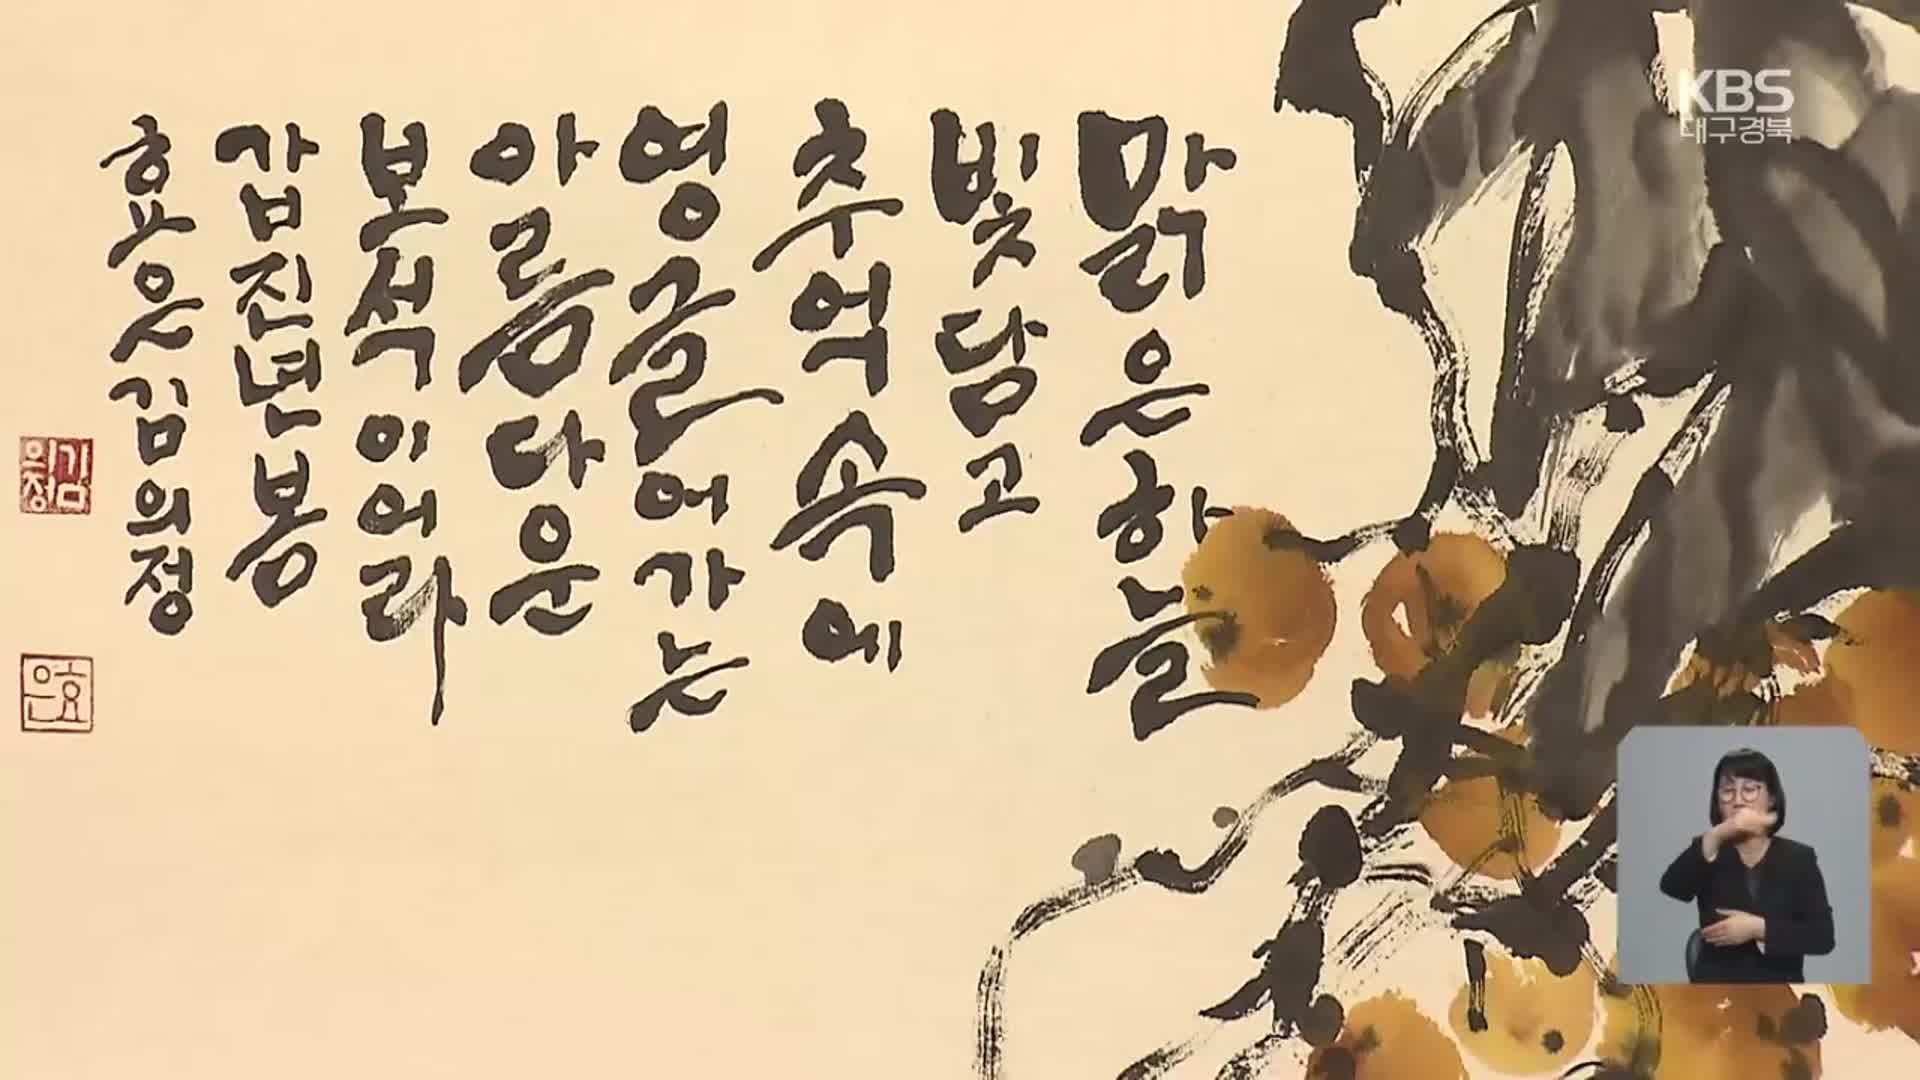 맑은하늘
빛담고
추억속에
영글어가는
아름다운
보석이어라
갑진년봄
효은김의정
김의정
효은
KBS
대구경북